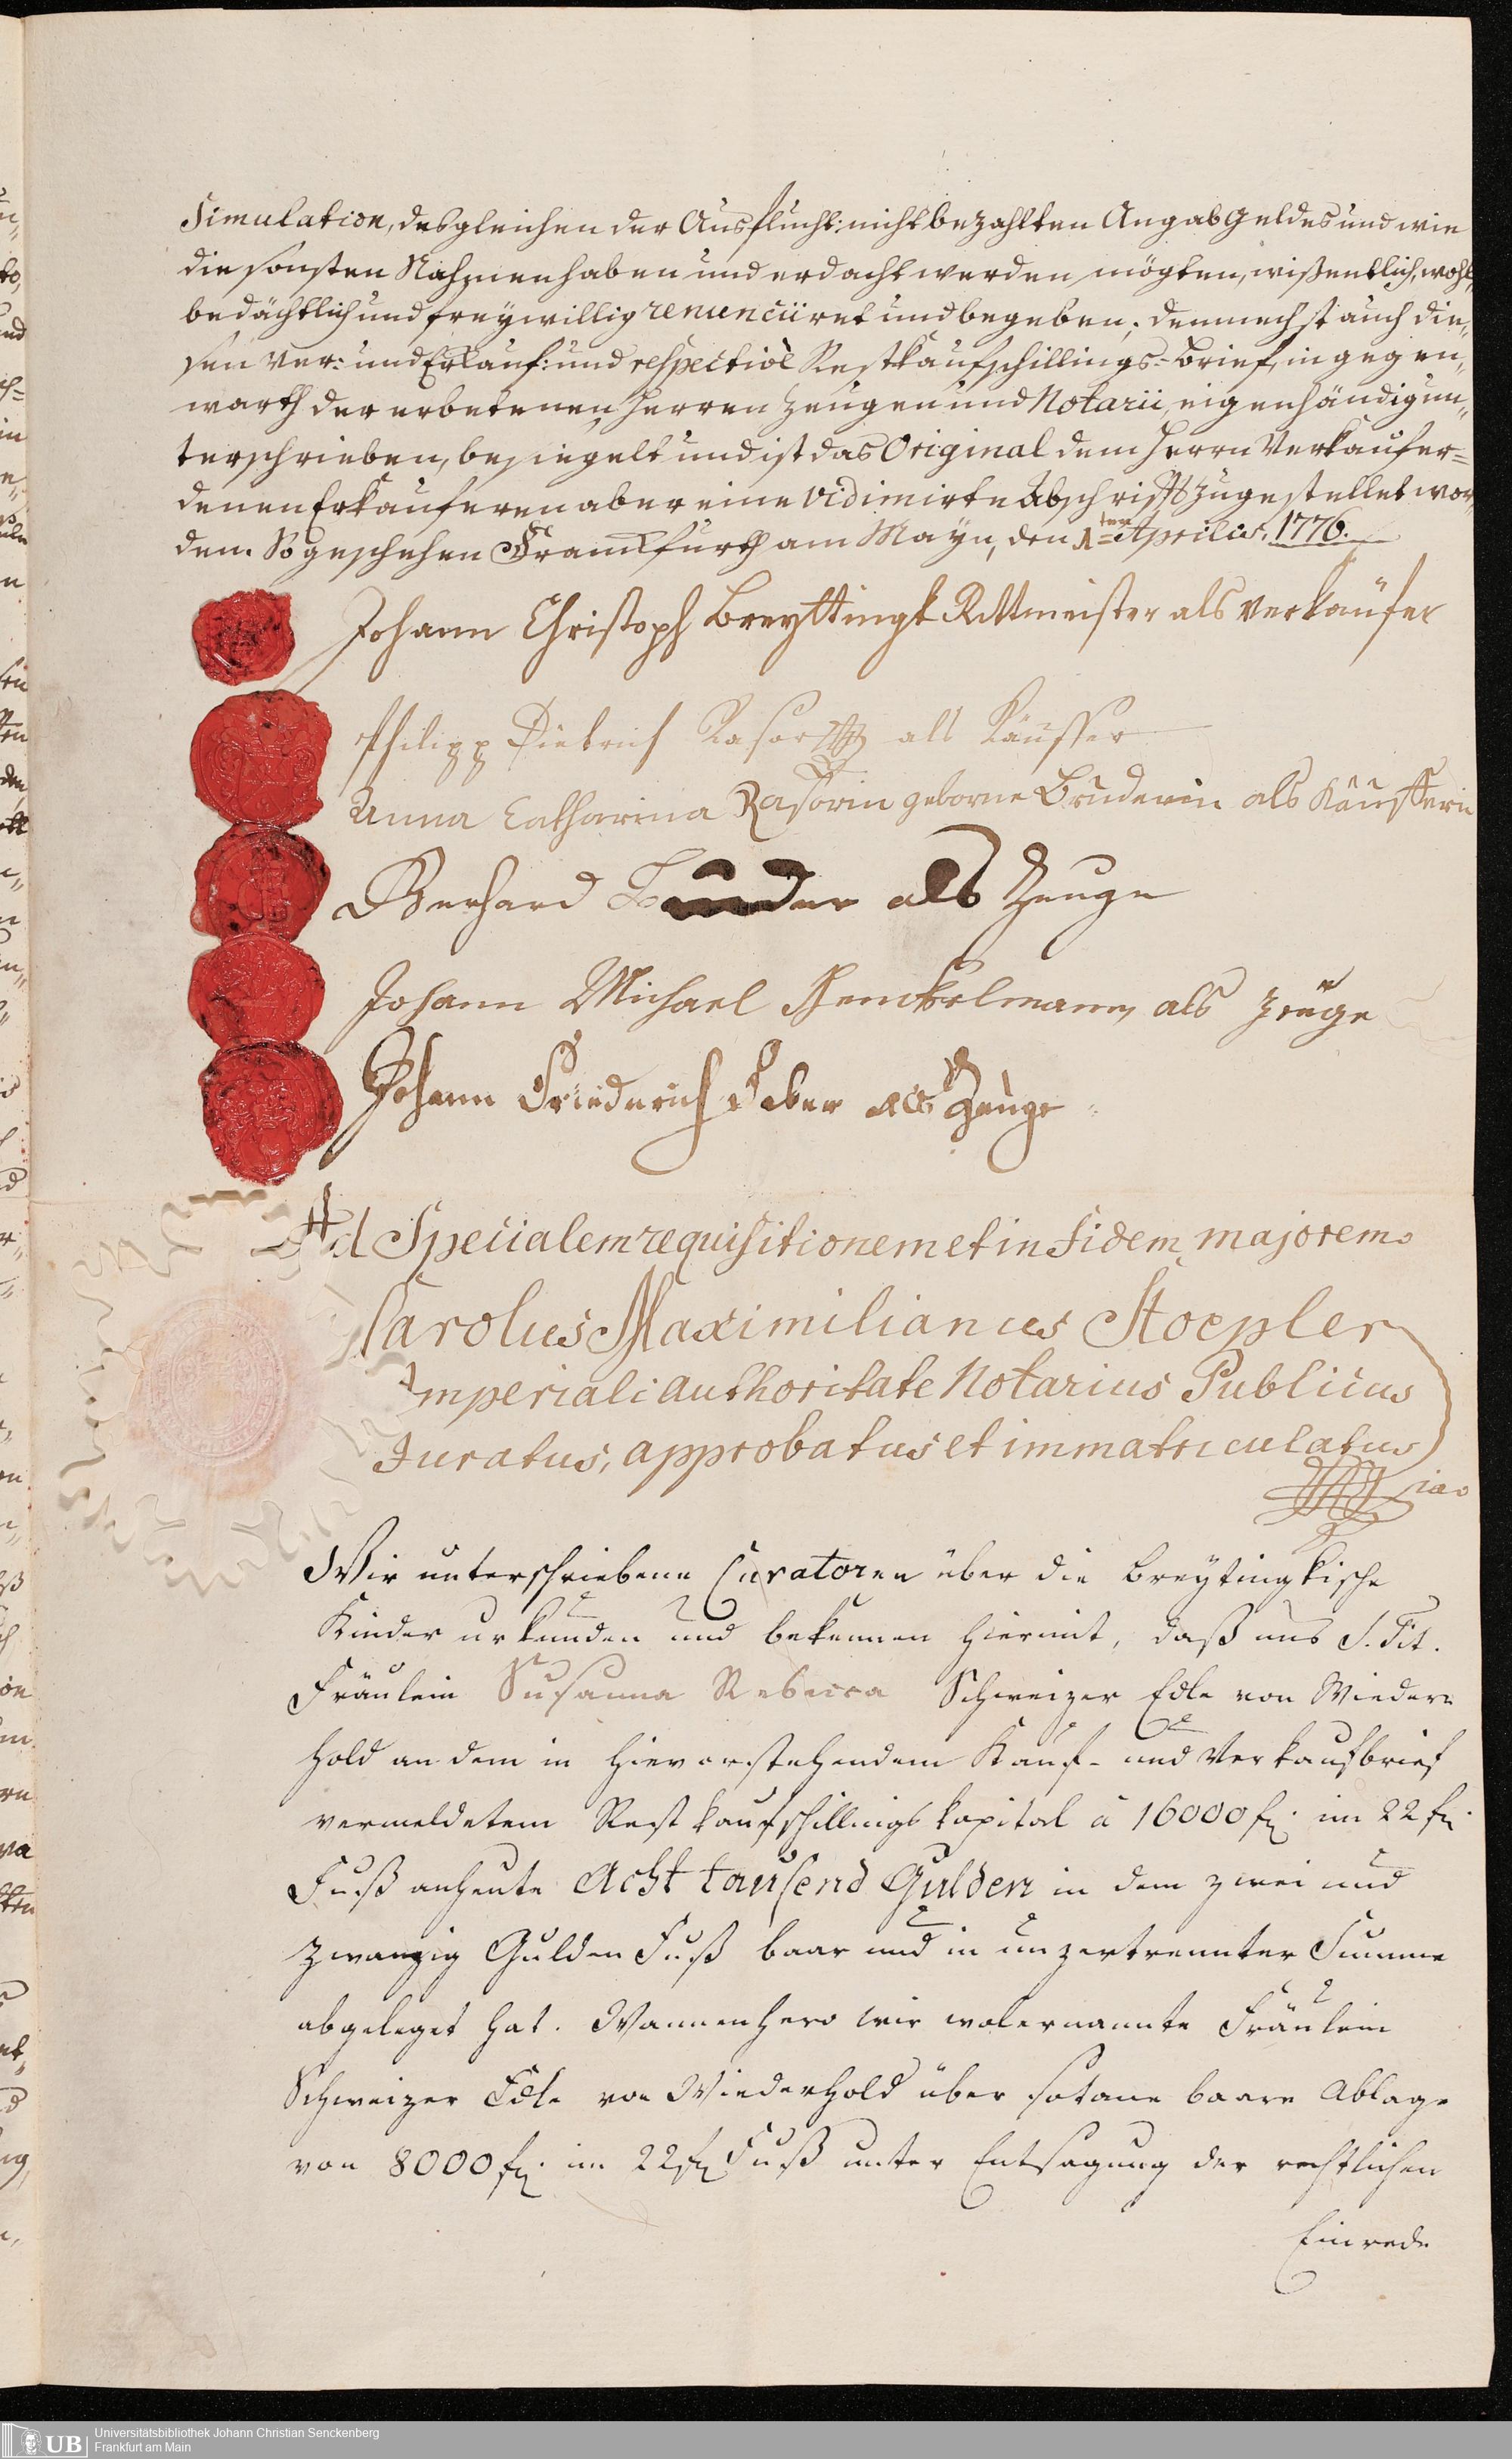 Simulation, desgleichen der Ausflucht: nicht bezahlten Angab Geldes und wie
die sonsten Nahmen haben und erdacht werden mögten, wißentlich, wohl„
bedächtlich und freywillig renunciiret und begeben; demnechst auch die„
sen Ver: und Erkauf: und respective Restkaufschillings-Brief, in gegen„
warth der erbetenen Herren Zeugen und Notarii, eigenhändig un„
terschrieben, besiegelt und ist das Original dem Herrn Verkaufer=
denen Erkauferen aber eine vidimirte Abschrifft zugestellet wor„
den. So geschehen Franckfurth am Mayn, den 1ten Aprilis, 1776.
Johann Christoph Breyttingk Rittmeister als Verkäufer
Philipp Dietrich Rasor als Käuffer
Anna Catharina Rasorin geborne Bruderin als Käufferin
Gerhard Bruder als Zeuge
Johann Michael Henckelmann als Zeuge
Johann Friederich Faber als Zeuge
Ad Specialem requisitionem et in Fidem majorem
Carolus Maximilianus Stoepler
Imperiali authoritate Notarius Publicus
Juratus, approbatus et immatriculatus
Wir unterschriebene Curatoren über die Breytingkische
Kinder urkunden und bekennen hiermit, daß uns S. Tit.
Fräulein Susanna Rebecca Schweizer Edle von Wieder=
hold an dem in hievorstehendem Kauf- und Verkaufbrief
vermeldetem Restkaufschillingskapital à 16000 fl. im 22 fl.
Fuß anheute Acht tausend Gulden in dem zwei und
zwanzig Gulden Fuß baar und in unzertrennter Summe
abgeleget hat. Wannenhero wir wolernannte Fräulein
Schweizer Edle von Wiederhold über sotane baare Ablage
von 8000 fl. im 22 fl Fuß unter Entsagung der rechtlichen
Einrede
UB
Universitätsbibliothek Johann Christian Senckenberg
Frankfurt am Main